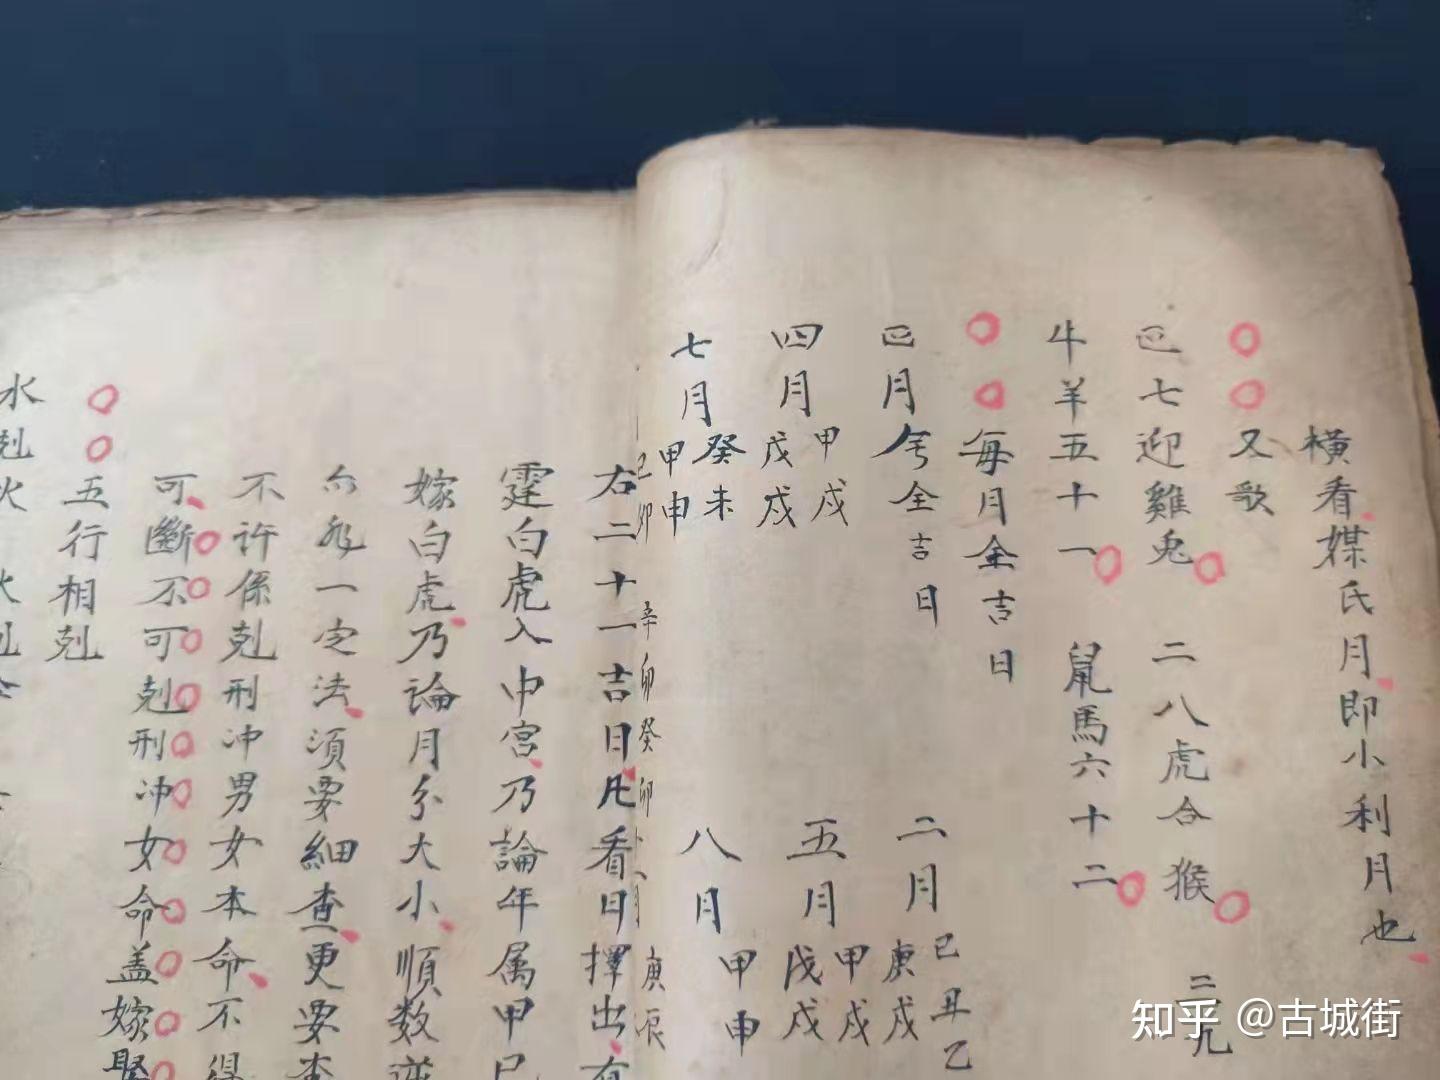 橫看媒氏月即小利月也
又歌
正七迎雞兎 二八虎合猴 三九
牛羊五十一 鼠馬六十二
每月全吉日
正月 全吉日 二月 己丑乙 庚戌
四月 甲戌 戊戌 五月 甲戌 戊戌
七月 癸未 甲申 八月 甲申
己卯 辛卯 癸卯 庚辰
右二十一吉日凡看日擇出有
霆白虎入中宮乃論年属甲己
嫁白虎乃論月分大小順数逆
一定法須要細查更要查
不許係剋刑冲男女本命不得
可斷不可剋刑冲女命盖嫁娶
五行相剋
水剋火 火剋金
知乎 @古城街